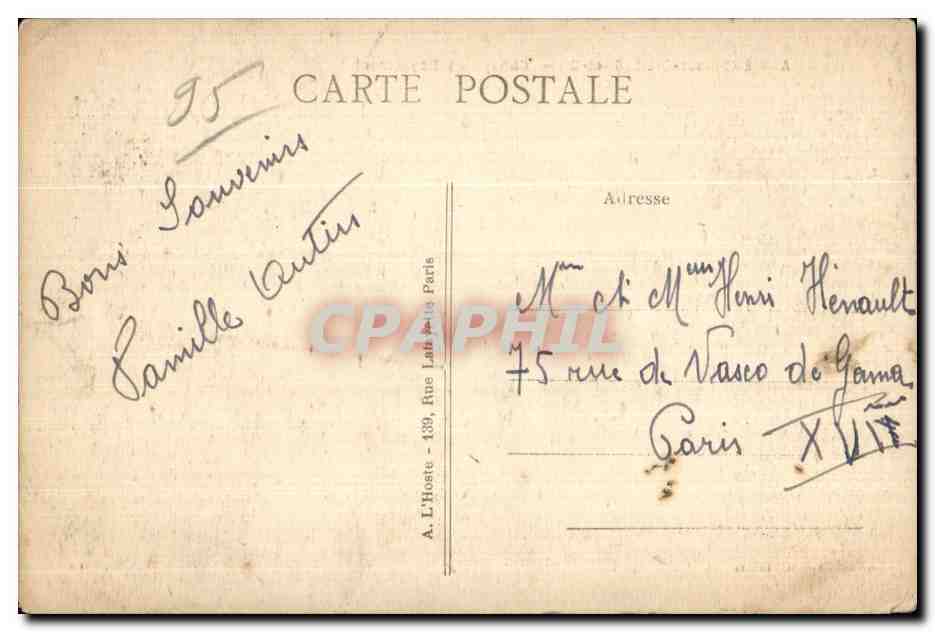 CARTE POSTALE
95
Bons Souvenirs
Famille Autin
Adresse
Mme et Mme Henri Hénault
75 rue de Vasco de Gama
Paris XVIème
A. L'Hoste - 139, Rue Lafayette Paris
CPAPHIL